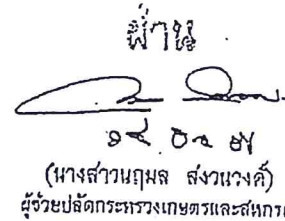 ผ่าน
(นางสาวนฤมล สงวนวงศ์)
ผู้ช่วยปลัดกระทรวงเกษตรและสหกรณ์